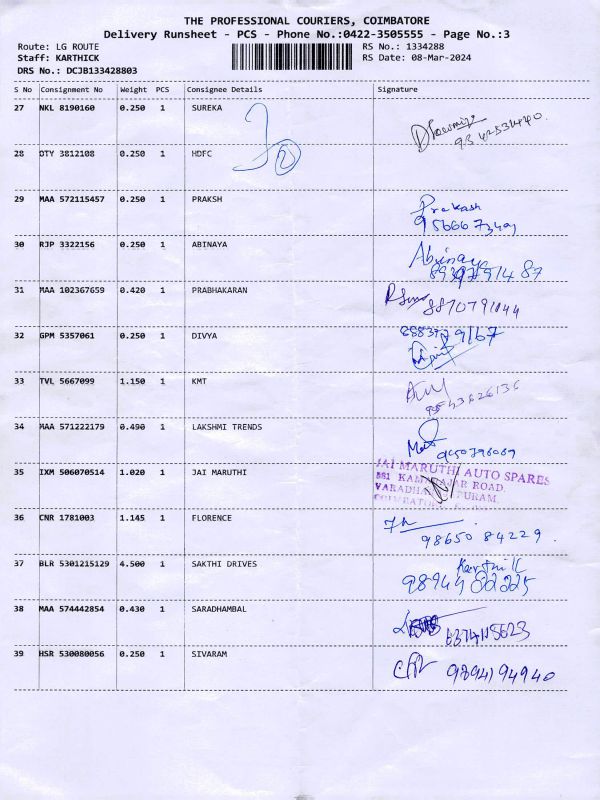 THE PROFESSIONAL COURIERS, COIMBATORE
Delivery Runsheet - PCS - Phone No.:0422-3505555 - Page No.:3
Route: LG ROUTE RS No.: 1334288
Staff: KARTHICK RS Date: 08-Mar-2024
DRS No.: DCJB133428803
S No Consignment No Weight PCS Consignee Details Signature
27 NKL 8190160 0.250 1 SUREKA
28 DTY 3812108 0.250 1 HDFC
2
29 MAA 572115457 0.250 1 PRAKSH Prakash
30 RJP 3322156 0.250 1 ABINAYA Abinay
31 MAA 102367659 0.420 1 PRABHAKARAN
32 GPM 5357061 0.250 1 DIVYA
33 TVL 5667099 1.150 1 KMT
34 MAA 571222179 0.490 1 LAKSHMI TRENDS
35 IXM 506070514 1.020 1 JAI MARUTHI JAI MARUTHI AUTO SPARES
ROAD.
36 CNR 1781003 1.145 1 FLORENCE
98650 84229.
37 BLR 5301215129 4.500 1 SAKTHI DRIVES
38 MAA 574442854 0.430 1 SARADHAMBAL
39 HSR 530080056 0.250 1 SIVARAM
9894194940